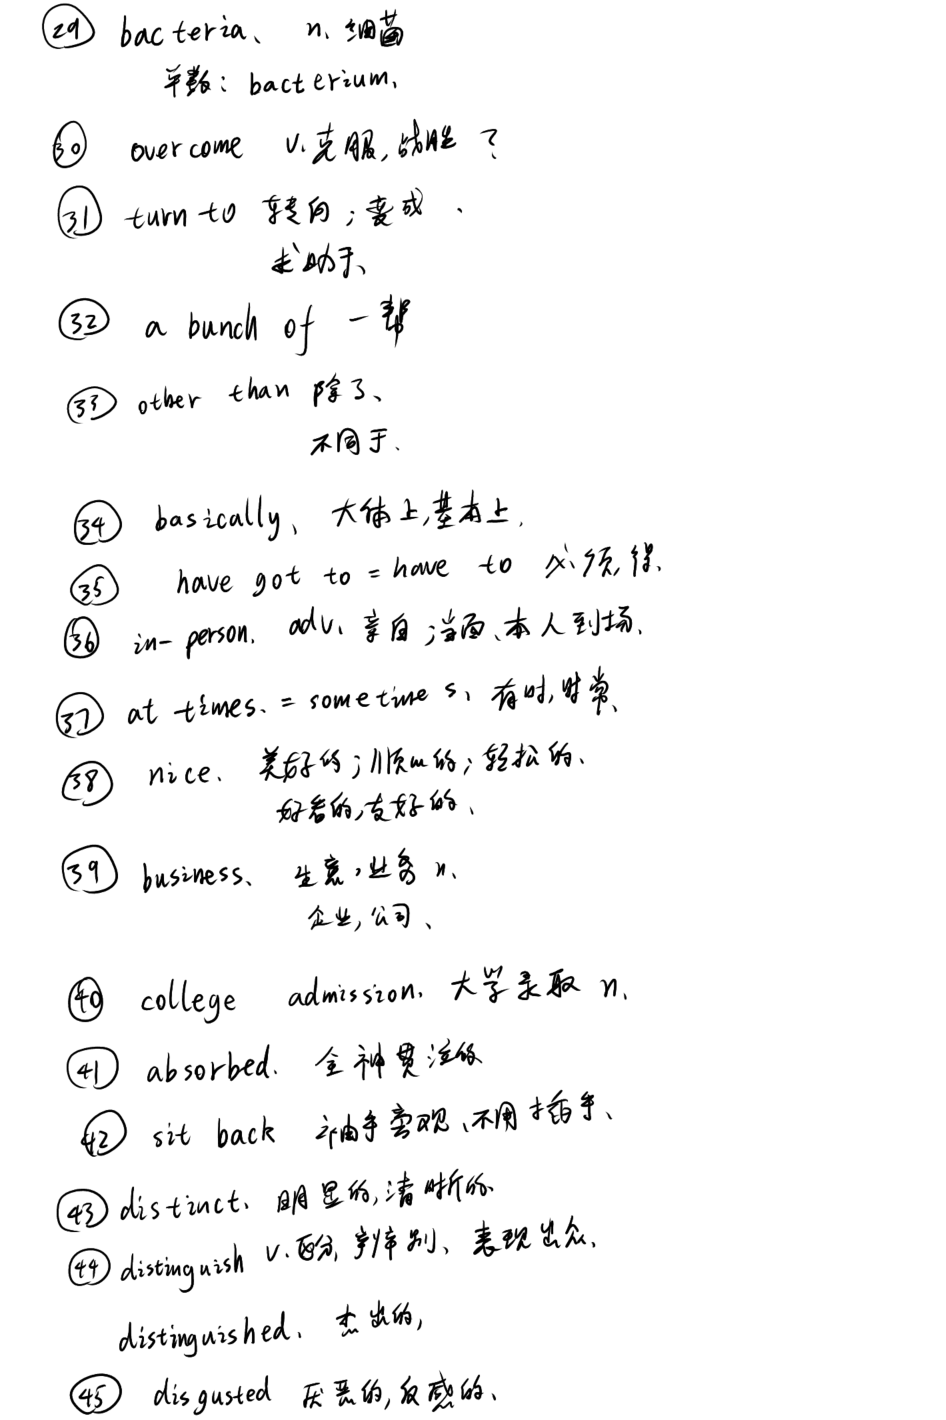 ㉙ bacteria、 n、细菌
单数: bacterium、
㉚ overcome v.克服,战胜 ?
㉛ turn to 转向;变成、
求助于、
㉜ a bunch of 一帮
㉝ other than 除了、
不同于.
㉞ basically、大体上,基本上,
㉟ have got to = have to 必须,得、
㊱ in-person. adv、亲自;当面、本人到场、
㊲ at times、= sometimes、有时,时常、
㊳ nice、美好的;顺心的;轻松的、
好看的,友好的、
㊴ business、生意,业务 n、
企业,公司、
㊵ college admission、大学录取 n、
㊶ absorbed. 全神贯注的
㊷ sit back 袖手旁观、不用插手、
㊸ distinct、明显的,清晰的
㊹ distinguish v.区分,辨别、表现出众、
distinguished、杰出的,
㊺ disgusted 厌恶的,反感的、